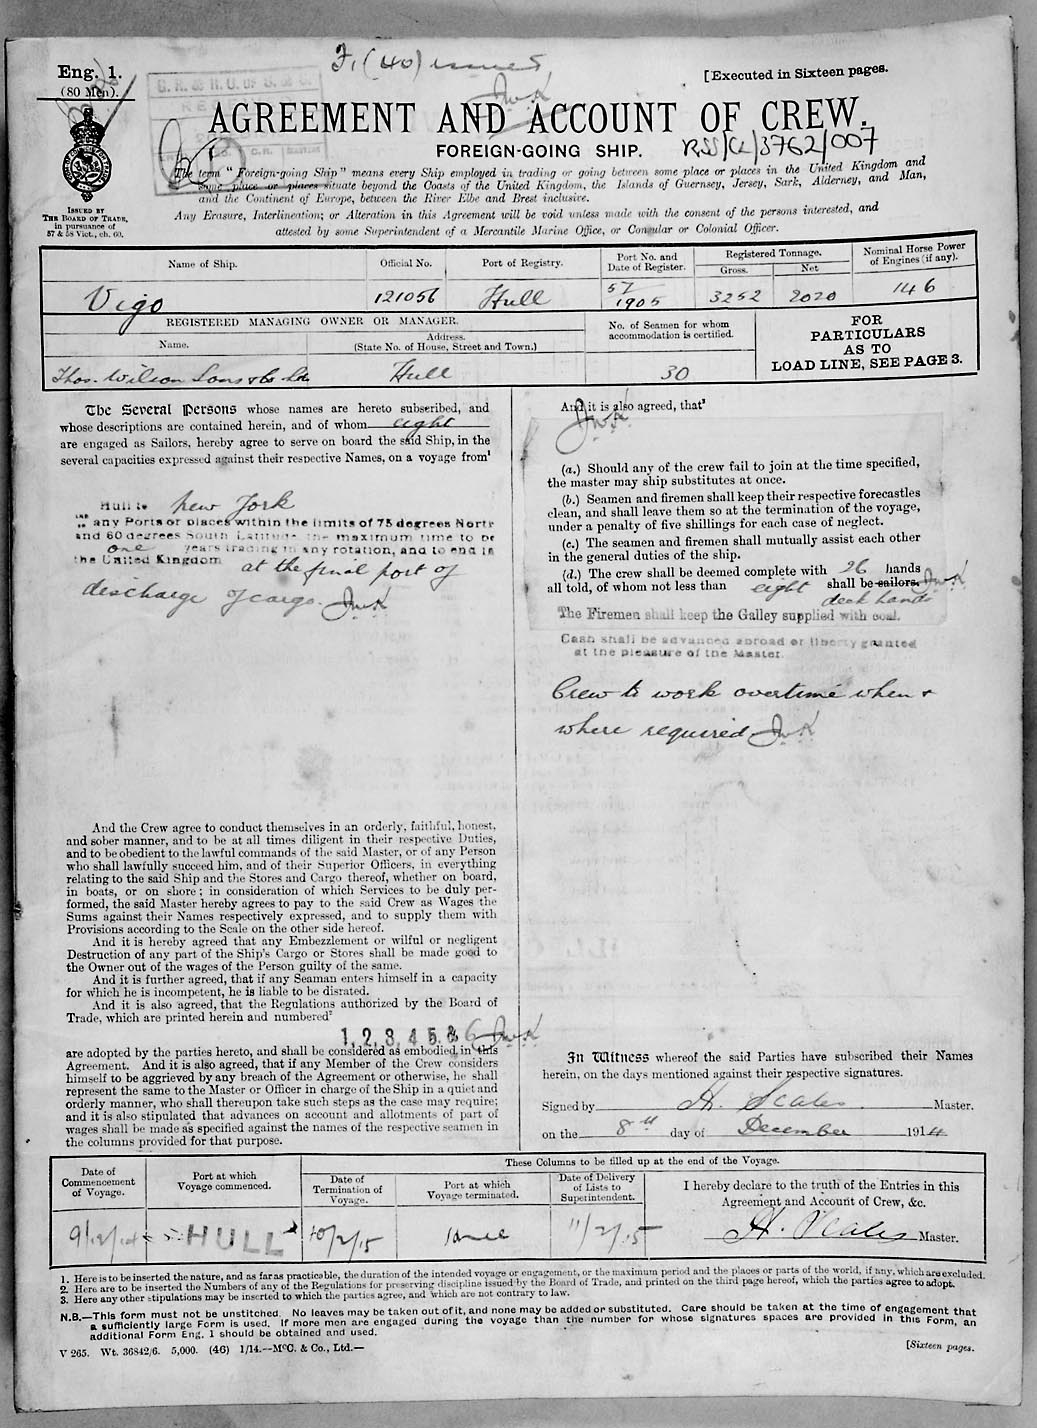 Eng. 1.
(80 Men).
F, (40) issues
[Executed in Sixteen pages.
JwK
AGREEMENT AND ACCOUNT OF CREW.
FOREIGN-GOING SHIP.
RSS/CL/3762/007
The term "Foreign-going Ship" means every Ship employed in trading or going between some place or places in the United Kingdom and
some place or places situate beyond the Coasts of the United Kingdom, the Islands of Guernsey, Jersey, Sark, Alderney, and Man,
and the Continent of Europe, between the River Elbe and Brest inclusive.
Any Erasure, Interlineation; or Alteration in this Agreement will be void unless made with the consent of the persons interested, and
attested by some Superintendent of a Mercantile Marine Office, or Consular or Colonial Officer.
ISSUED BY
THE BOARD OF TRADE,
in pursuance of
57 & 58 Vict., ch. 60.
Name of Ship.
Official No.
Port of Registry.
Port No. and
Date of Register.
Registered Tonnage.
Gross.
Net
Nominal Horse Power
of Engines (if any).
Vigo
121056
Hull
57
1905
3252
2020
146
REGISTERED MANAGING OWNER OR MANAGER.
Name.
Address.
(State No. of House, Street and Town.)
No. of Seamen for whom
accommodation is certified.
FOR
PARTICULARS
AS TO
LOAD LINE, SEE PAGE 3.
Thos. Wilson Sons & Co Ld.
Hull
30
The Several Persons whose names are hereto subscribed, and
whose descriptions are contained herein, and of whom eight
are engaged as Sailors, hereby agree to serve on board the said Ship, in the
several capacities expressed against their respective Names, on a voyage from¹
Hull to New York
any Ports or places within the limits of 75 degrees North
and 60 degrees South Latitude the maximum time to be
one years trading in any rotation, and to end in
the United Kingdom at the final port of
discharge of cargo. JwK
And the Crew agree to conduct themselves in an orderly, faithful, honest,
and sober manner, and to be at all times diligent in their respective Duties,
and to be obedient to the lawful commands of the said Master, or of any Person
who shall lawfully succeed him, and of their Superior Officers, in everything
relating to the said Ship and the Stores and Cargo thereof, whether on board,
in boats, or on shore; in consideration of which Services to be duly per-
formed, the said Master hereby agrees to pay to the said Crew as Wages the
Sums against their Names respectively expressed, and to supply them with
Provisions according to the Scale on the other side hereof.
And it is hereby agreed that any Embezzlement or wilful or negligent
Destruction of any part of the Ship's Cargo or Stores shall be made good to
the Owner out of the wages of the Person guilty of the same.
And it is further agreed, that if any Seaman enters himself in a capacity
for which he is incompetent, he is liable to be disrated.
And it is also agreed, that the Regulations authorized by the Board of
Trade, which are printed herein and numbered²
1, 2, 3, 4, 5, & 6 JwK
are adopted by the parties hereto, and shall be considered as embodied in this
Agreement. And it is also agreed, that if any Member of the Crew considers
himself to be aggrieved by any breach of the Agreement or otherwise, he shall
represent the same to the Master or Officer in charge of the Ship in a quiet and
orderly manner, who shall thereupon take such steps as the case may require;
and it is also stipulated that advances on account and allotments of part of
wages shall be made as specified against the names of the respective seamen in
the columns provided for that purpose.
And it is also agreed, that³
JwK
(a.) Should any of the crew fail to join at the time specified,
the master may ship substitutes at once.
(b.) Seamen and firemen shall keep their respective forecastles
clean, and shall leave them so at the termination of the voyage,
under a penalty of five shillings for each case of neglect.
(c.) The seamen and firemen shall mutually assist each other
in the general duties of the ship.
(d.) The crew shall be deemed complete with 26 hands
all told, of whom not less than eight shall be sailors. JwK
deck hands
The Firemen shall keep the Galley supplied with coal.
Cash shall be advanced abroad or liberty granted
at the pleasure of the Master.
Crew to work overtime when &
where required. JwK
In Witness whereof the said Parties have subscribed their Names
herein, on the days mentioned against their respective signatures.
Signed by H. Scales. Master.
on the 8th day of December 1914
These Columns to be filled up at the end of the Voyage.
Date of
Commencement
of Voyage.
Port at which
Voyage commenced.
Date of
Termination of
Voyage.
Port at which
Voyage terminated.
Date of Delivery
of Lists to
Superintendent.
I hereby declare to the truth of the Entries in this
Agreement and Account of Crew, &c.
9/12/14
HULL
10/2/15
Hull
11/2/15
H. Scales Master.
1. Here is to be inserted the nature, and as far as practicable, the duration of the intended voyage or engagement, or the maximum period and the places or parts of the world, if any, which are excluded.
2. Here are to be inserted the Numbers of any of the Regulations for preserving discipline issued by the Board of Trade, and printed on the third page hereof, which the parties agree to adopt.
3. Here any other stipulations may be inserted to which the parties agree, and which are not contrary to law.
N.B.—This form must not be unstitched. No leaves may be taken out of it, and none may be added or substituted. Care should be taken at the time of engagement that
a sufficiently large Form is used. If more men are engaged during the voyage than the number for whose signatures spaces are provided in this Form, an
additional Form Eng. 1 should be obtained and used.
V 265. Wt. 36842/6. 5,000. (46) 1/14.—McC. & Co., Ltd.—
[Sixteen pages.